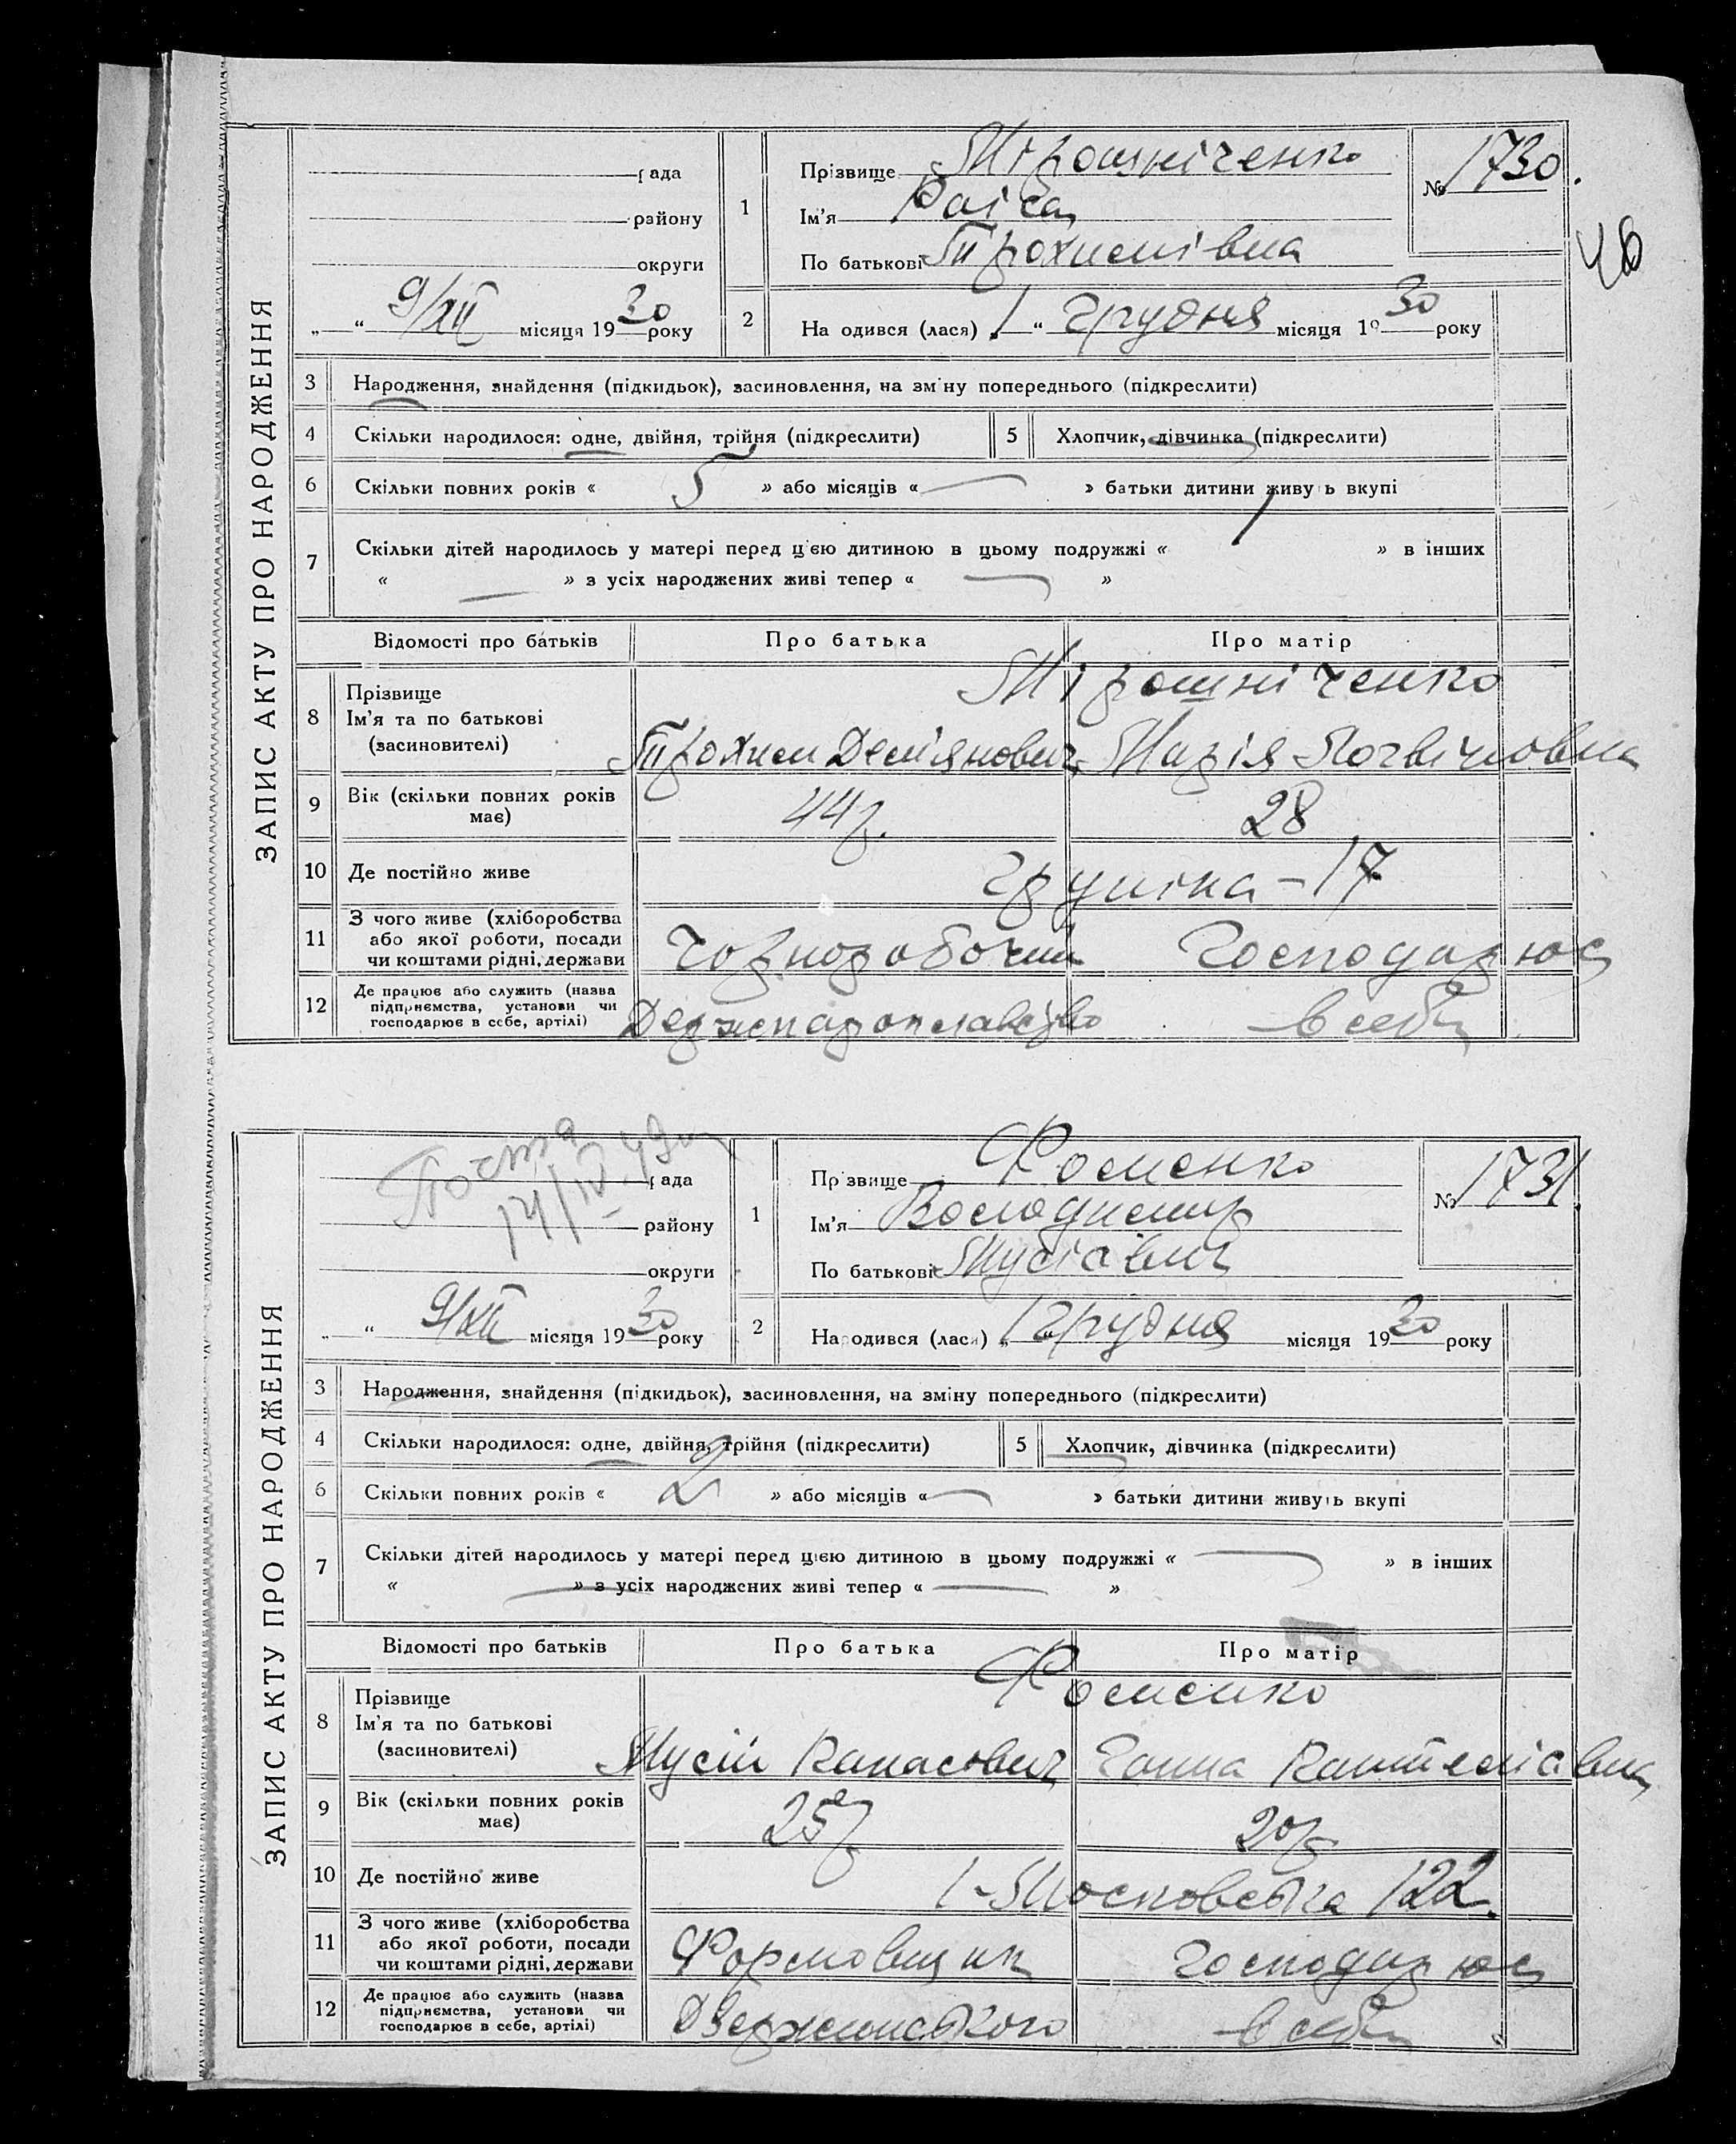 ЗАПИС АКТУ ПРО НАРОДЖЕННЯ
рада
району
округи
„ “ 9/XII місяця 1930 року
1
Прізвище Мірошніченко
Ім’я Раіса
По батькові Трохимівна
№ 1730.
46
2 На одився (лася) „1“ грудня місяця 1930 року
3 Народження, знайдення (підкидьок), засиновлення, на зміну попереднього (підкреслити)
4 Скільки народилося: одне, двійня, трійня (підкреслити) 5 Хлопчик, дівчинка (підкреслити)
6 Скільки повних років « 5 » або місяців « — » батьки дитини живу ь вкупі
7 Скільки дітей народилось у матері перед цією дитиною в цьому подружжі « 1 » в інших
« — » з усіх народжених живі тепер « — »
Відомості про батьків Про батька Про матір
8 Прізвище
Ім’я та по батькові
(засиновителі)
Мірошніченко
Трохим Дем'янович Марія
9 Вік (скільки повних років має) 44 р. 28
10 Де постійно живе 17
11 З чого живе (хліборобства або якої роботи, посади чи коштами рідні, держави Чорноробочий Господарює
12 Де працює або служить (назва підприємства, установи чи господарює в себе, артілі) Держпароплавство в себе
ЗАПИС АКТУ ПРО НАРОДЖЕННЯ
рада
району
округи
14/IV 49
„ “ 9/XII місяця 1930 року
1
Пр звище Фоменко
Ім’я Володимир
По батькові Мусієвич
№ 1731.
2 Народився (лася) „1“ грудня місяця 1930 року
3 Народження, знайдення (підкидьок), засиновлення, на зміну попереднього (підкреслити)
4 Скільки народилося: одне, двійня, трійня (підкреслити) 5 Хлопчик, дівчинка (підкреслити)
6 Скільки повних років « 2 » або місяців « — » батьки дитини живуть вкупі
7 Скільки дітей народилось у матері перед цією дитиною в цьому подружжі « — » в інших
« — » з усіх народжених живі тепер « — »
Відомості про батьків Про батька Про матір
8 Прізвище
Ім’я та по батькові
(засиновителі)
Фоменко
Мусій Панасович Ганна
9 Вік (скільки повних років має) 25 р 20 р
10 Де постійно живе 1-Московська 122.
11 З чого живе (хліборобства або якої роботи, посади чи коштами рідні, держави Формовщик Господарює
12 Де працює або служить (назва підприємства, установи чи господарює в себе, артілі) Дзержинського в себе